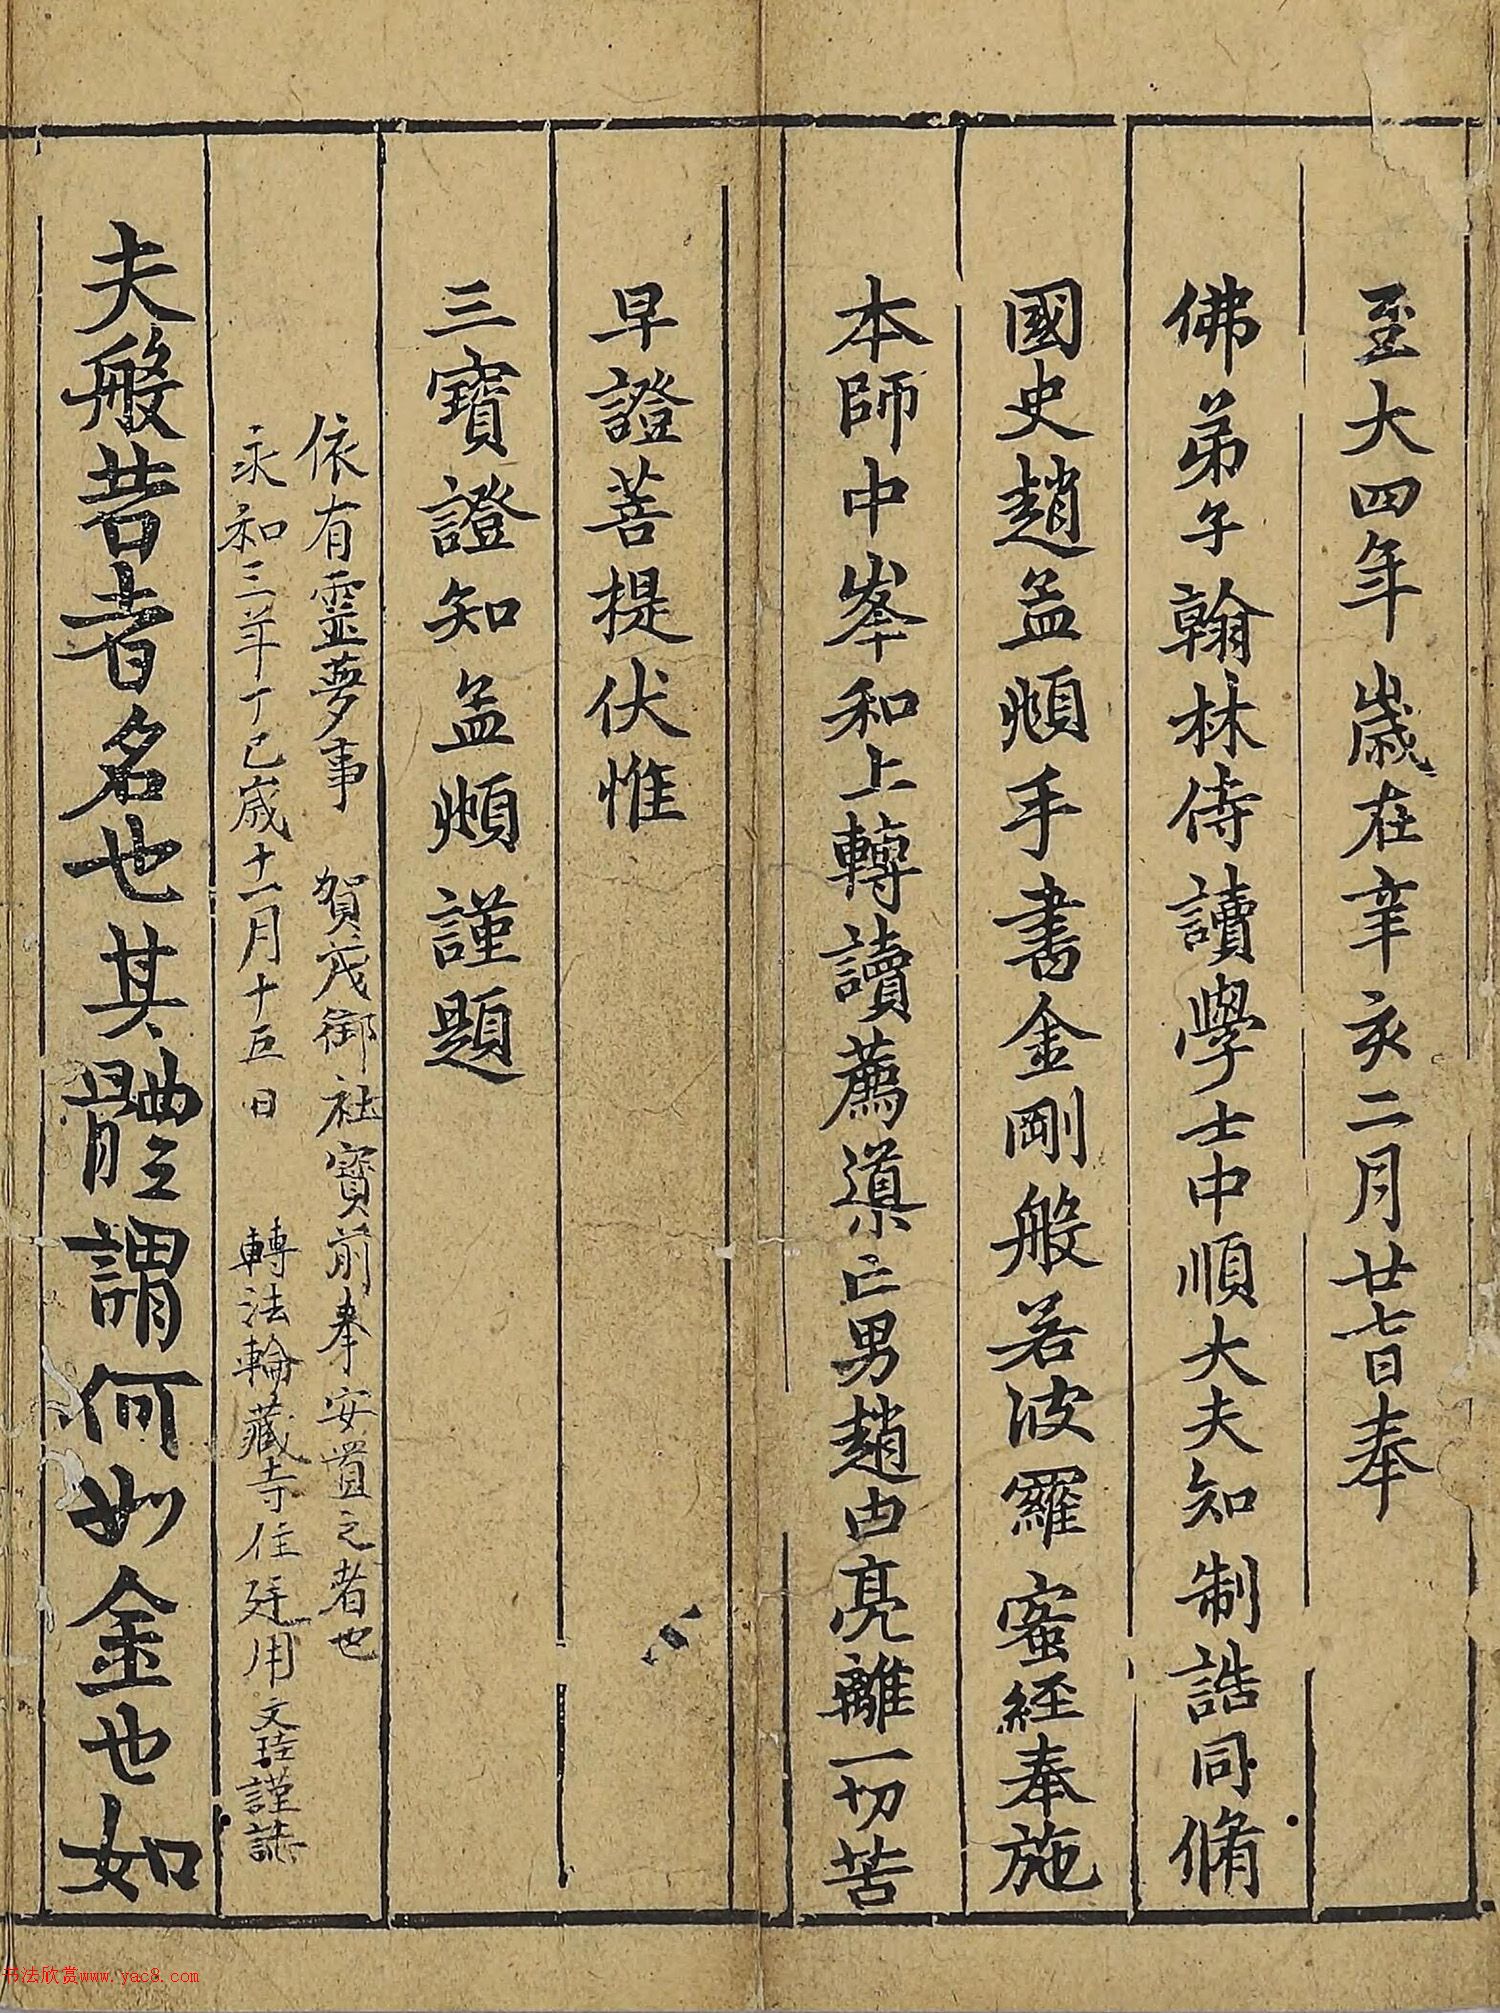 至大四年歲在辛亥二月廿七日奉
佛弟子翰林侍讀學士中順大夫知制誥同脩
國史趙孟頫手書金剛般若波羅蜜經奉施
本師中峯和上轉讀薦導亡男趙由亮離一切苦
早證菩提伏惟
三寶證知孟頫謹題
依有靈夢事 賀茂御社寶前奉安置之者也
永和三年丁巳歲十一月十五日 轉法輪藏寺住持用文珪謹誌
夫般若者名也其體謂何如金也如
书法欣赏www.yac8.com